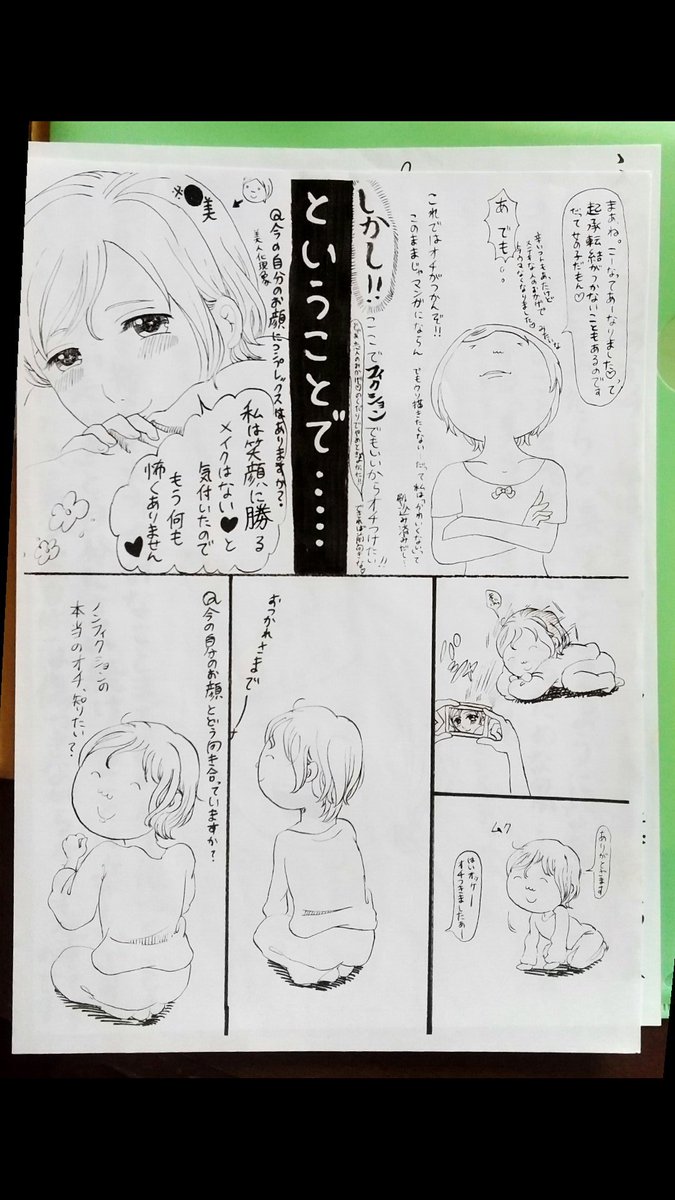 まぁね。こーなってあーなりました♡って
起承転結がつかないこともあるのです
だって女の子だもん♡
あ でも
辛いコトもあったけど
ステキな人のおかげで
みたいな
これではオチがつかんぞ!!
このままじゃマンガにならん
でもウソ描きたくない
だって私は「かわいくない」って
刷り込み済みだし…
しかし!!
ここでフィクションでもいいからオチつけたい!!
ということで……
Q.今の自分のお顔にコンプレックスはありますか?
※●美
美人化現象
私は笑顔に勝る
メイクはない♥と
気付いたので
もう何も
怖くありません
♥
ムク
ありがとざます
はいオッケー
オチつきましたぁー
おつかれさまでー
Q.今の自分のお顔とどう向き合っていますか?
ノンフィクションの
本当のオチ、知りたい?